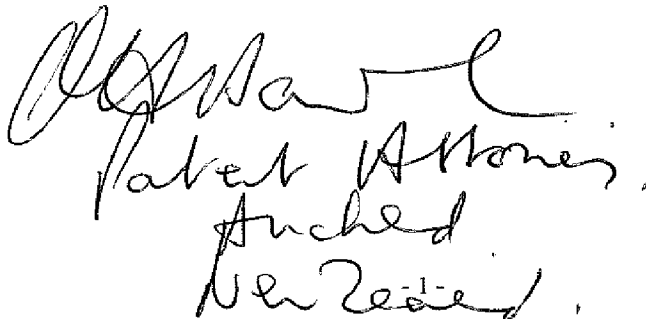 Patent Attorney.
Auckland
New Zealand.
- 1 -